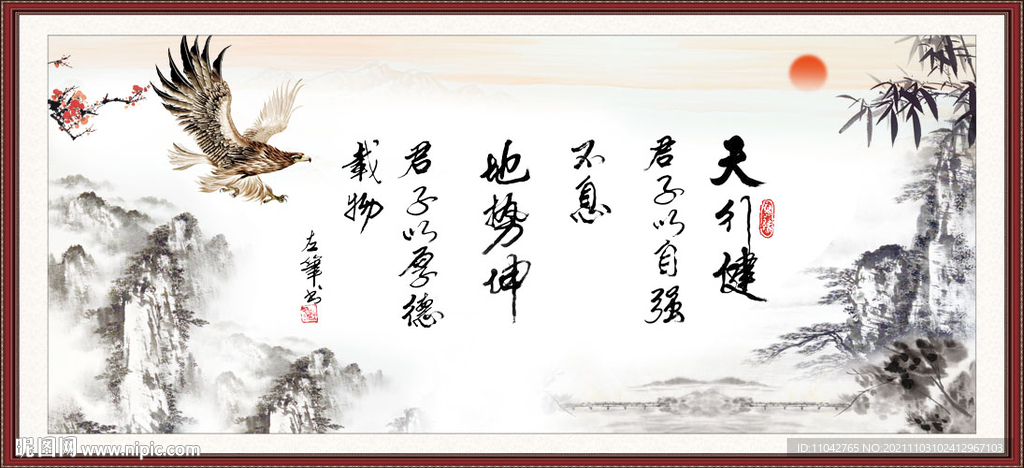 天行健
君子以自强
不息
地势坤
君子以厚德
载物
左笔书
昵图网 www.nipic.com
ID:11042765 NO:20211103102412967103